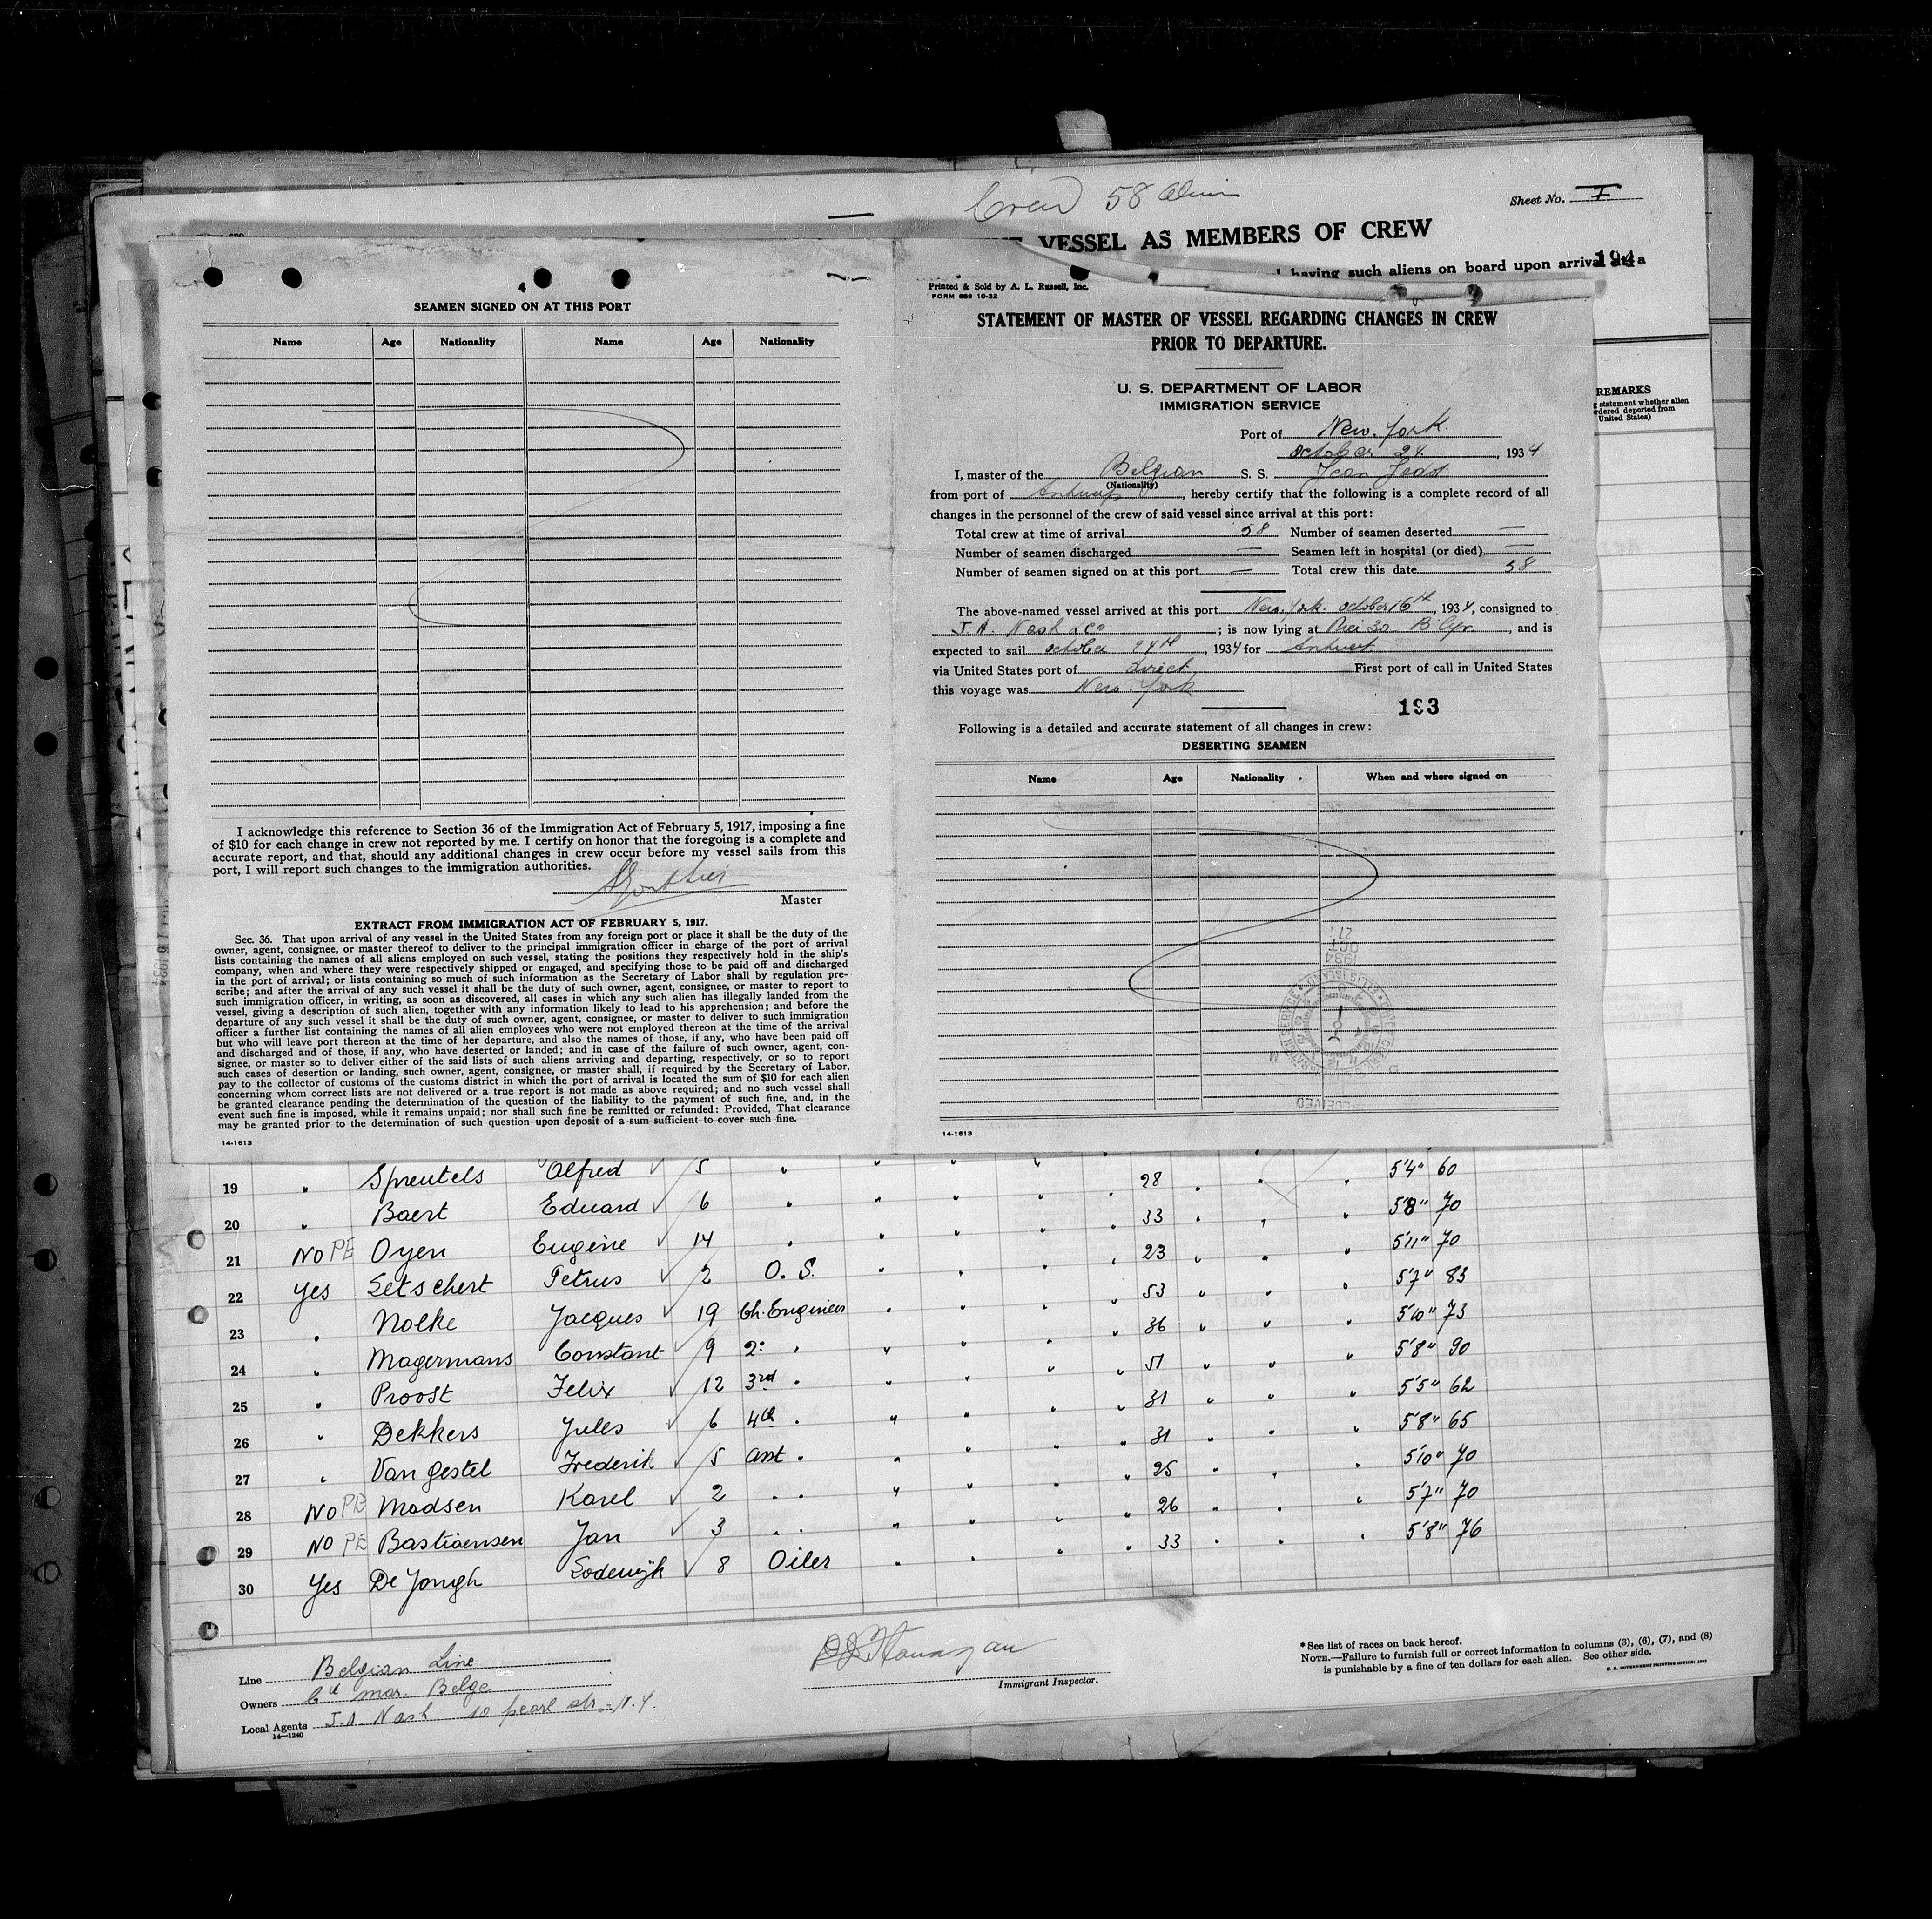 Crew 58
Sheet No. I
VESSEL AS MEMBERS OF CREW
having such aliens on board upon arrival at a
194
REMARKS
statement whether alien
ordered deported from
United States)
4
SEAMEN SIGNED ON AT THIS PORT
Name Age Nationality Name Age Nationality
I acknowledge this reference to Section 36 of the Immigration Act of February 5, 1917, imposing a fine
of $10 for each change in crew not reported by me. I certify on honor that the foregoing is a complete and
accurate report, and that, should any additional changes in crew occur before my vessel sails from this
port, I will report such changes to the immigration authorities.
Master
EXTRACT FROM IMMIGRATION ACT OF FEBRUARY 5, 1917.
Sec. 36. That upon arrival of any vessel in the United States from any foreign port or place it shall be the duty of the
owner, agent, consignee, or master thereof to deliver to the principal immigration officer in charge of the port of arrival
lists containing the names of all aliens employed on such vessel, stating the positions they respectively hold in the ship's
company, when and where they were respectively shipped or engaged, and specifying those to be paid off and discharged
in the port of arrival; or lists containing so much of such information as the Secretary of Labor shall by regulation pre-
scribe; and after the arrival of any such vessel it shall be the duty of such owner, agent, consignee, or master to report to
such immigration officer, in writing, as soon as discovered, all cases in which any such alien has illegally landed from the
vessel, giving a description of such alien, together with any information likely to lead to his apprehension; and before the
departure of any such vessel it shall be the duty of such owner, agent, consignee, or master to deliver to such immigration
officer a further list containing the names of all alien employees who were not employed thereon at the time of the arrival
but who will leave port thereon at the time of her departure, and also the names of those, if any, who have been paid off
and discharged and of those, if any, who have deserted or landed; and in case of the failure of such owner, agent, con-
signee, or master so to deliver either of the said lists of such aliens arriving and departing, respectively, or so to report
such cases of desertion or landing, such owner, agent, consignee, or master shall, if required by the Secretary of Labor,
pay to the collector of customs of the customs district in which the port of arrival is located the sum of $10 for each alien
concerning whom correct lists are not delivered or a true report is not made as above required; and no such vessel shall
be granted clearance pending the determination of the question of the liability to the payment of such fine, and, in the
event such fine is imposed, while it remains unpaid; nor shall such fine be remitted or refunded: Provided, That clearance
may be granted prior to the determination of such question upon deposit of a sum sufficient to cover such fine.
14-1613
Printed & Sold by A. L. Russell, Inc.
FORM 689 10-32
STATEMENT OF MASTER OF VESSEL REGARDING CHANGES IN CREW
PRIOR TO DEPARTURE.
U. S. DEPARTMENT OF LABOR
IMMIGRATION SERVICE
Port of New. York.
October 24. , 1934
I, master of the Belgian S. S. Jean Jadot
(Nationality)
from port of Antwerp , hereby certify that the following is a complete record of all
changes in the personnel of the crew of said vessel since arrival at this port:
Total crew at time of arrival 58 Number of seamen deserted —
Number of seamen discharged — Seamen left in hospital (or died) —
Number of seamen signed on at this port — Total crew this date 58
The above-named vessel arrived at this port New. York. october 16th , 1934, consigned to
J. A. Nash & Co ; is now lying at Pier 30 B'klyn. , and is
expected to sail october 24th , 1934 for Antwerp
via United States port of Direct First port of call in United States
this voyage was New. York
193
Following is a detailed and accurate statement of all changes in crew:
DESERTING SEAMEN
Name Age Nationality When and where signed on
1934
OCT
27
RECEIVED
14-1613
19 " Spreutels Alfred ✓ 5 " " " " 28 " " " 5'4" 60
20 " Baert Eduard ✓ 6 " " " " " 33 " " " 5'8" 70
21 NO PE Oyen Eugène ✓ 14 " " " " " 23 " " " 5'11" 70
22 Yes Letschert Petrus ✓ 2 O. S. " " " " 53 " " " 5'7" 83
23 " Nolke Jacques ✓ 19 Ch. Engineer " " " " 36 " " " 5'10" 73
24 " Magermans Constant ✓ 9 2: " " " " " 51 " " " 5'8" 90
25 " Proost Felix ✓ 12 3rd " " " " " 31 " " " 5'5" 62
26 " Dekkers Jules ✓ 6 4th " " " " " 31 " " " 5'8" 65
27 " Van Gestel Frederik ✓ 5 asst " " " " " 25 " " " 5'10" 70
28 NO PE Madsen Karel ✓ 2 " " " " " " 26 " " " 5'7" 70
29 NO PE Bastiaensen Jan ✓ 3 " " " " " " 33 " " " 5'8" 76
30 Yes De Jongh Lodewijk ✓ 8 Oiler " " "
Line Belgian Line
Owners Cie Mar. Belge
Local Agents J. A. Nash 10 pearl str. N. Y.
14—1240
Immigrant Inspector.
*See list of races on back hereof.
NOTE.—Failure to furnish full or correct information in columns (3), (6), (7), and (8)
is punishable by a fine of ten dollars for each alien. See other side.
U. S. GOVERNMENT PRINTING OFFICE: 1932